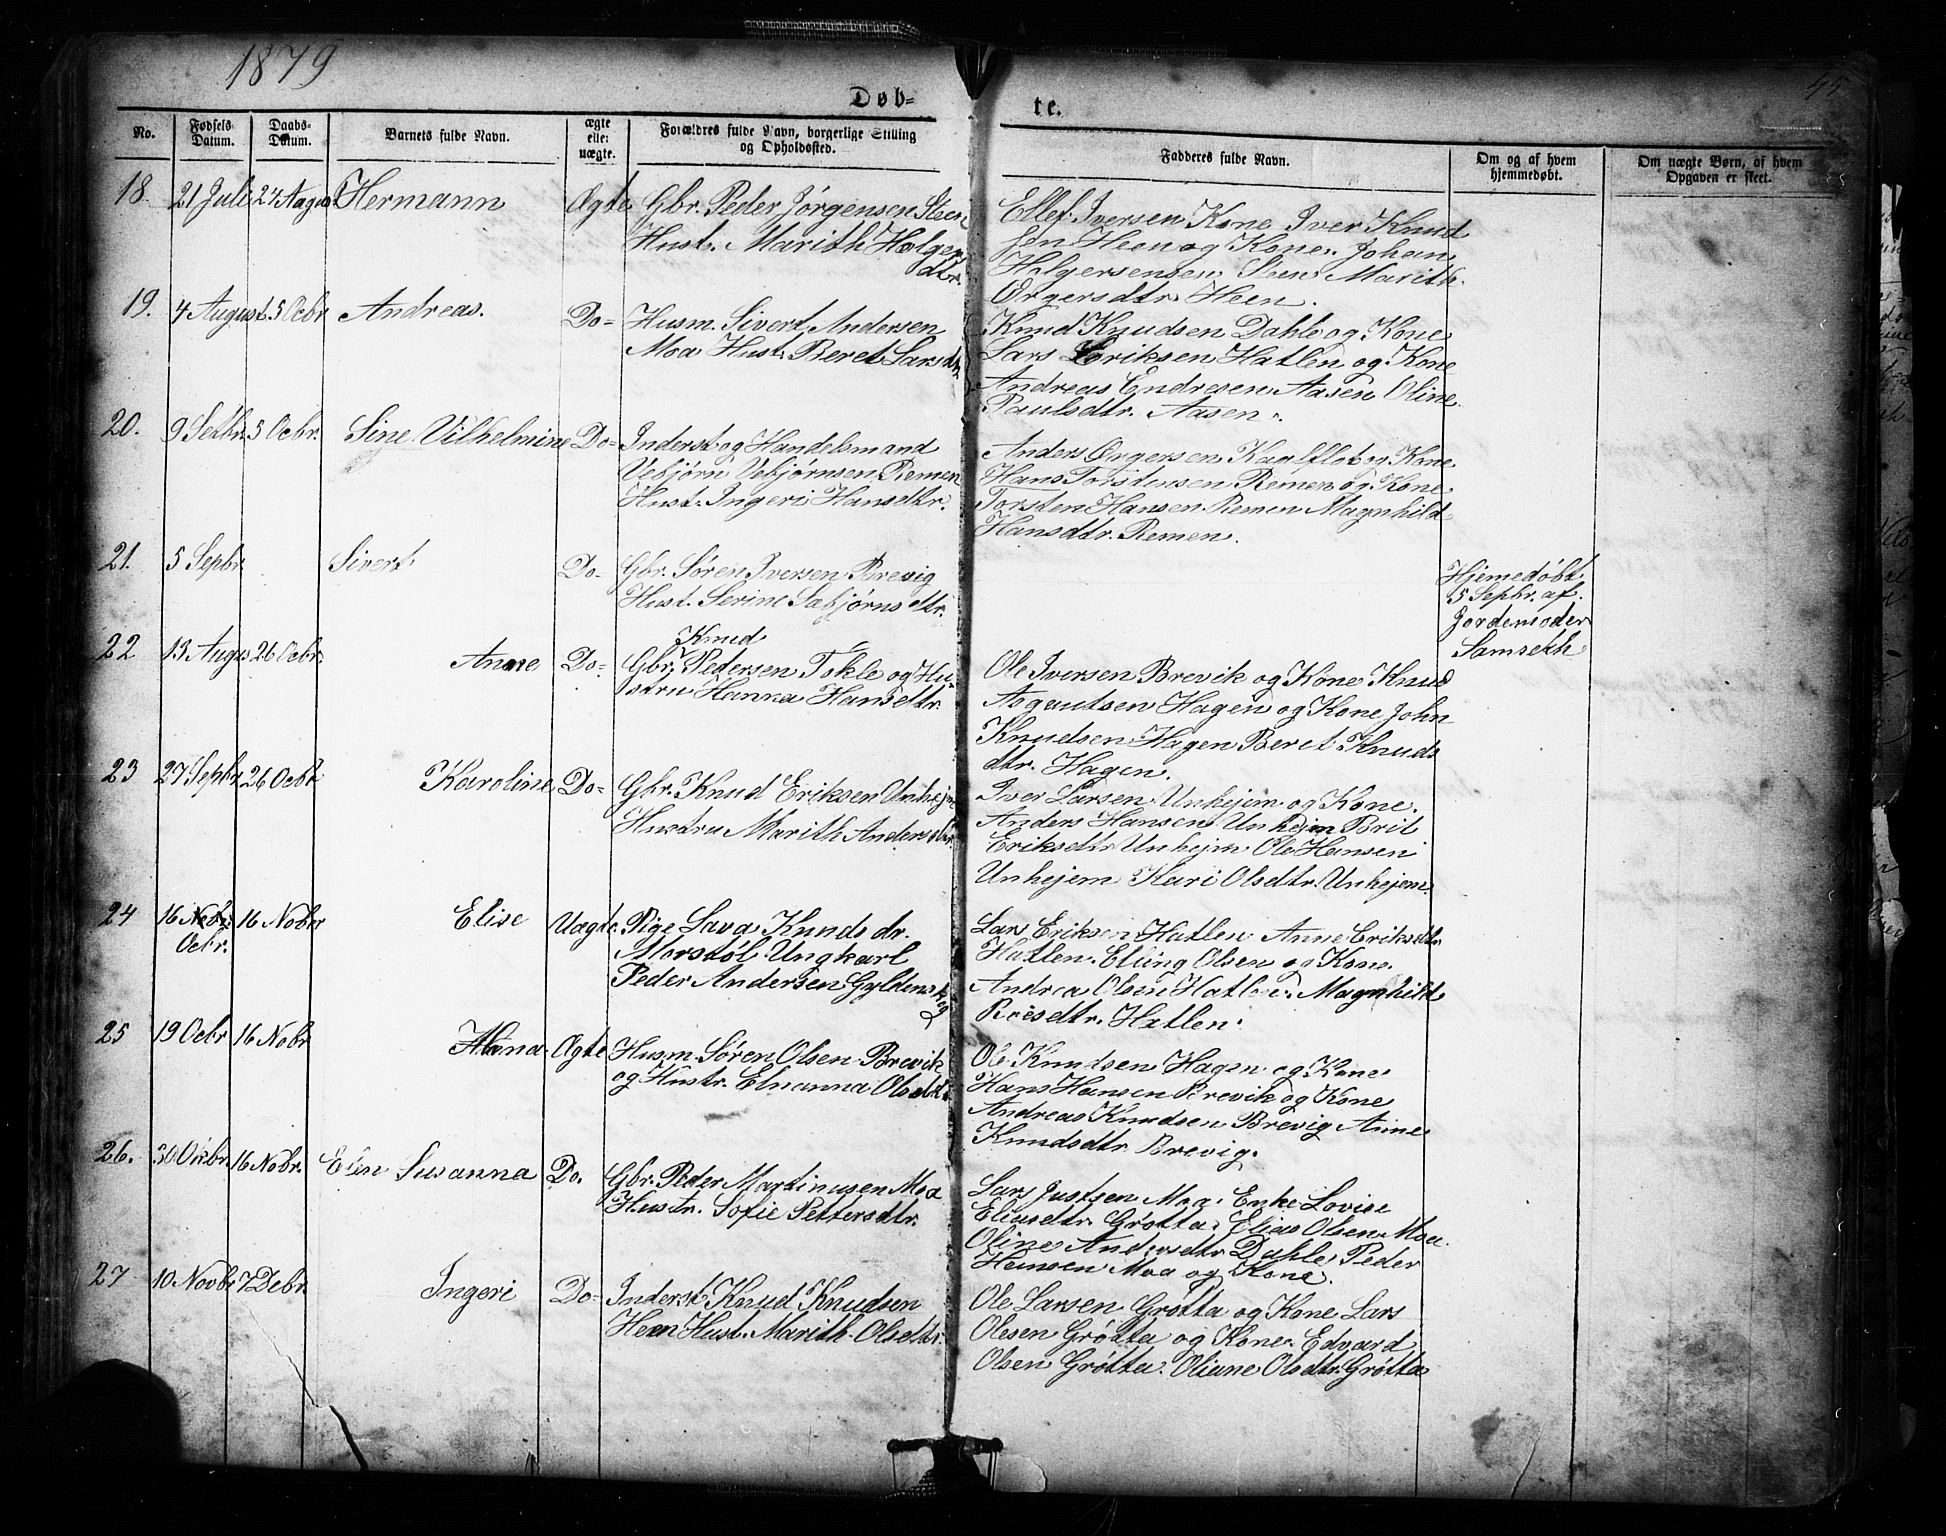 1879
45
Døb=
te.
No.
Fødsels Datum.
Daabs-Datum.
Barnets fulde Navn.
ægte elle: uægte.
Forældres fulde Navn, borgerlige Stilling og Opholdssted.
Fadderes fulde Navn.
Om og af hvem hjemmedøbt.
Om uægte Børn, af hvem Opgaven er skeet.
18. 21 Juli 24 August Hermann Ægte Gbr. Peder Jørgensen Steen
Hust. Marith Holger
dtr.
Ellef Iversen Kone Iver Knud
sen Heen og Kone. Johan
Holgersensen Steen Marith
Ørgersdtr. Heen.
19. 4 August 5 Ocbr Andreas. Do= Husm. Sivert Andersen
Moa Hust. Beret Larsdtr.
Knud Knudsen Dahle og Kone
Lars Eriksen Hatlen og Kone
Andreas Endresen Aasen Oline
Paulsdtr. Aasen.
20. 9 Setbr. 5 Ocbr. Sine Vilhelmine Do= Inderst og Handelsmand
Vebjørn Vebjørnsen Remen
Hust. Ingeri Hansdtr.
Anders Ørgersen Kaalflot og Kone
Hans Torstensen Remen og Kone
Torsten Hansen Remen Magnhild
Hansdtr. Remen.
21. 5 Sepbr. Sivert Do- Gbr. Søren Iversen Brevig
Hust. Serine Sæbjørnsdtr.
Hjemedøbt
5 Sepbr. af
Jordemoder
Samseth
22 13 Augus 26 Ocbr. Anne Do- Gbr. Knud Pedersen Tokle og Hu-
stru Hanna Hansdtr.
Ole Iversen Brevik og Kone Knud
Aogautsen Hagen og Kone John
Knudsen Hagen Beret Knuds
dtr. Hagen.
23 27 Sepbr. 26 Ocbr Karoline Do= Gbr. Knud Eriksen Unhejm
Hustru Marith Andersdtr.
Iver Larsen Unhejem og Kone.
Anders Hansen Unhejm Brit
Eriksdtr Unhejm Ole Hansen
Unhejem Kari Olsdtr. Unhejem.
24 16 Nobr. 16 Nobr Elise Uægte Pige Lava Knudsdr.
Ocbr.
Morstøl Ungkarl
Peder Andersen Gyldenskog
Lars Eriksen Hatlen. Anne Eriksdtr.
Hatlen. Elling Olsen og Kone.
Andrea Olsen Hatlen Magnhild
Roesdtr. Hatlen.
25 19 Ocbr 16 Nobr Ægte Husm. Søren Olsen Brevik
og Hustr. Elianna Olsdtr.
Ole Knudsen Hagen og Kone
Hans Hansen Brevik og Kone
Andreas Knudsen Brevig Anne
Knudsdtr. Brevig.
26. 30 Okbr. 16 Nobr. Elen Susanna Do. Gbr. Peder Martinusen Moa
Hustr. Sofie Pettersdtr.
Lars Justsen Moa. Enke Lovise
Eliasdtr. Grøtta. Elias Olsen Moa
Oline Andersdtr Dahle Peder
Hansen Moa og Kone.
27 10 Novbr 7 Debr. Ingeri Do- Inderst Knud Knudsen
Heen Hust. Marith Olsdtr.
Ole Larsen Grøtta og Kone Lars
Olesen Grøtta og Kone. Edvard
Olsen Grøtta. Oliane Olsdtr. Grøtta